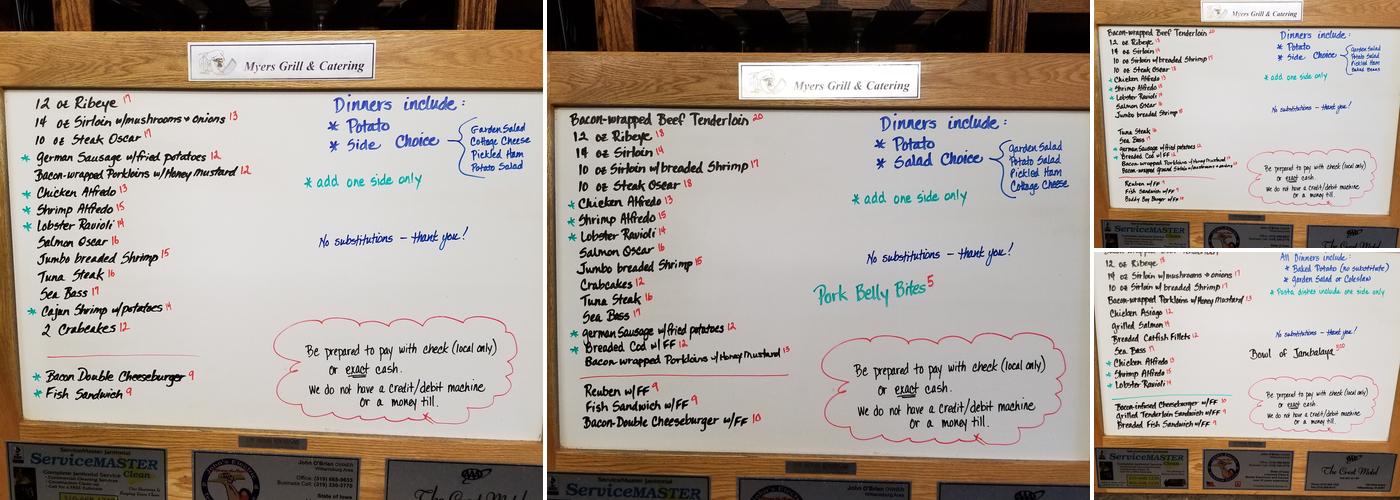 Myers Grill & Catering
12 oz Ribeye 17
14 oz Sirloin w/mushrooms + onions 13
10 oz Steak Oscar 17
* german Sausage w/fried potatoes 12
Bacon-wrapped Porkloins w/Honey mustard 12
* Chicken Alfredo 13
* Shrimp Alfredo 15
* Lobster Ravioli 14
Salmon Oscar 16
Jumbo breaded Shrimp 15
Tuna Steak 16
Sea Bass 17
* Cajun Shrimp w/potatoes 14
2 Crabcakes 12
* Bacon Double Cheeseburger 9
* Fish Sandwich 9
Dinners include:
* Potato
* Side Choice
Garden Salad
Cottage Cheese
Pickled Ham
Potato Salad
* add one side only
No substitutions - thank you!
Be prepared to pay with check (local only)
or exact cash.
We do not have a credit/debit machine
or a money till.
ServiceMASTER Janitorial
Complete Janitorial Service
ServiceMASTER
Clean
John O'Brien OWNER
Williamsburg Area
State of Iowa
AAA
The Great Motel
Myers Grill & Catering
Bacon-wrapped Beef Tenderloin 20
12 oz Ribeye 18
14 oz Sirloin 14
10 oz Sirloin w/breaded Shrimp 17
10 oz Steak Oscar 18
* Chicken Alfredo 13
* Shrimp Alfredo 15
* Lobster Ravioli 14
Salmon Oscar 16
Jumbo breaded Shrimp 15
Crabcakes 12
Tuna Steak 16
Sea Bass 17
* german Sausage w/fried potatoes 12
* Breaded Cod w/FF 12
Bacon-wrapped Porkloins w/Honey Mustard 13
Reuben w/FF 9
Fish Sandwich w/FF 9
Bacon-Double Cheeseburger w/FF 10
Dinners include:
* Potato
* Salad Choice
garden Salad
Potato Salad
Pickled Ham
Cottage Cheese
* add one side only
No substitutions - thank you!
Pork Belly Bites 5
Be prepared to pay with check (local only)
or exact cash.
We do not have a credit/debit machine
or a money till.
ServiceMASTER
John O'Brien OWNER
AAA
Myers Grill & Catering
Bacon-wrapped Beef Tenderloin 20
12 oz Ribeye 18
14 oz Sirloin 14
10 oz Sirloin w/breaded Shrimp 17
10 oz Steak Oscar 18
* Chicken Alfredo 13
* Shrimp Alfredo 15
* Lobster Ravioli 14
Salmon Oscar 16
Jumbo breaded Shrimp 15
Tuna Steak 16
Sea Bass 17
* german Sausage w/fried potatoes 12
* Breaded Cod w/FF 12
Bacon-wrapped Porkloins w/Honey Mustard
Bacon-wrapped ground Sirloin w/mushrooms + onions
Reuben w/FF 9
Fish Sandwich w/FF 9
Buddy Boy Burger w/FF
Dinners include:
* Potato
* Side Choice
Garden Salad
Potato Salad
Pickled Ham
Baked Beans
* add one side only
No substitutions - thank you!
Be prepared to pay with check (local only)
or exact cash.
We do not have a credit/debit machine
or a money till.
ServiceMASTER
The Great Motel
12 oz Ribeye 18
14 oz Sirloin w/mushrooms + onions 17
10 oz Sirloin w/breaded Shrimp 17
Bacon-wrapped Porkloins w/Honey Mustard 13
Chicken Asiago 12
Grilled Salmon 14
Breaded Catfish Fillets 12
Sea Bass 17
* Chicken Alfredo 13
* Shrimp Alfredo 15
* Lobster Ravioli 14
Bacon-infused Cheeseburger w/FF 10
Grilled Tenderloin Sandwich w/FF 9
Breaded Fish Sandwich w/FF 9
All Dinners include:
* Baked Potato (no substitute)
* garden Salad or Coleslaw
* Pasta dishes include one side
No substitutions - thank you!
Bowl of Jambalaya
Be prepared to pay with check (local only)
or exact cash.
We do not have a credit/debit machine
or a money till.
ServiceMASTER
Clean
AAA
The Great Motel